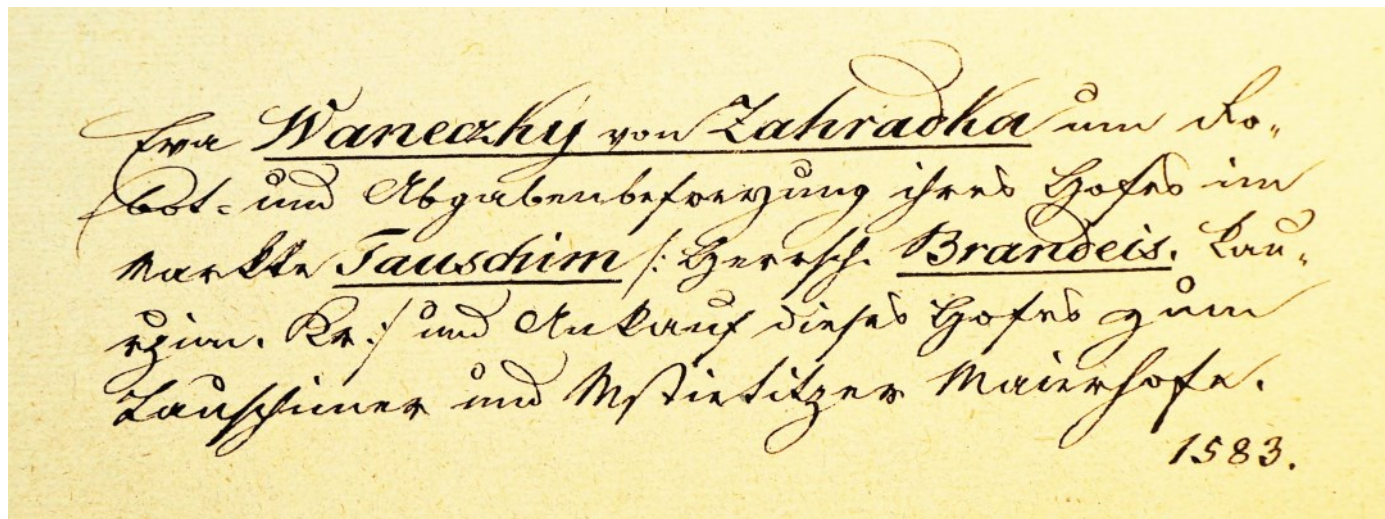 Eva Waneczky von Zahradka um Ro-
bot- und Abgabenbefreyung ihres Hofes im
Markte Tauschim /: Herrsch. Brandeis. Kau-
rzim. Kr. :/ und Ankauf dieses Hofes zum
Tauschimer und Mstietitzer Maierhofe.
1583.